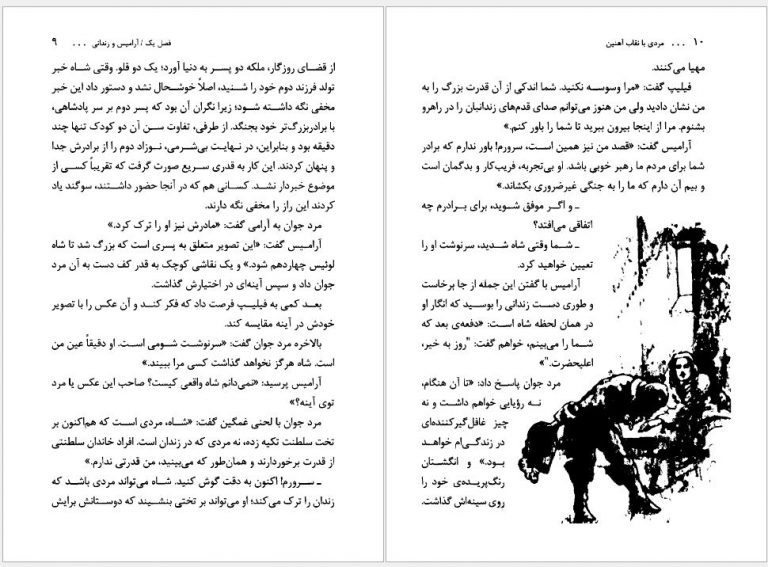 فصل یک / آرامیس و زندانی ... ۹
از قضای روزگار، ملکه دو پسر به دنیا آورد؛ یک دو قلو. وقتی شاه خبر
تولد فرزند دوم خود را شنید، اصلاً خوشحال نشد و دستور داد این خبر
مخفی نگه داشته شود؛ زیرا نگران آن بود که پسر دوم بر سر پادشاهی،
با برادربزرگ‌تر خود بجنگد. از طرفی، تفاوت سن آن دو کودک تنها چند
دقیقه بود و بنابراین، در نهایت بی‌شرمی، نوزاد دوم را از برادرش جدا
و پنهان کردند. این کار به قدری سریع صورت گرفت که تقریباً کسی از
موضوع خبردار نشد. کسانی هم که در آنجا حضور داشتند، سوگند یاد
کردند این راز را مخفی نگه دارند.
مرد جوان به آرامی گفت: «مادرش نیز او را ترک کرد.»
آرامیس گفت: «این تصویر متعلق به پسری است که بزرگ شد تا شاه
لوئیس چهاردهم شود.» و یک نقاشی کوچک به قدر کف دست به آن مرد
جوان داد و سپس آینه‌ای در اختیارش گذاشت.
بعد کمی به فیلیپ فرصت داد که فکر کند و آن عکس را با تصویر
خودش در آینه مقایسه کند.
بالاخره مرد جوان گفت: «سرنوشت شومی است. او دقیقاً عین من
است. شاه هرگز نخواهد گذاشت کسی مرا ببیند.»
آرامیس پرسید: «نمی‌دانم شاه واقعی کیست؟ صاحب این عکس یا مرد
توی آینه؟»
مرد جوان با لحنی غمگین گفت: «شاه، مردی است که هم‌اکنون بر
تخت سلطنت تکیه زده، نه مردی که در زندان است. افراد خاندان سلطنتی
از قدرت برخوردارند و همان‌طور که می‌بینید، من قدرتی ندارم.»
ـ سرورم! اکنون به دقت گوش کنید. شاه می‌تواند مردی باشد که
زندان را ترک می‌کند؛ او می‌تواند بر تختی بنشیند که دوستانش برایش
۱۰ ... مردی با نقاب آهنین
مهیا می‌کنند.
فیلیپ گفت: «مرا وسوسه نکنید. شما اندکی از آن قدرت بزرگ را به
من نشان دادید ولی من هنوز می‌توانم صدای قدم‌های زندانبان را در راهرو
بشنوم. مرا از اینجا بیرون ببرید تا شما را باور کنم.»
آرامیس گفت: «قصد من نیز همین است، سرورم! باور ندارم که برادر
شما برای مردم ما رهبر خوبی باشد. او بی‌تجربه، فریب‌کار و بدگمان است
و بیم آن دارم که ما را به جنگی غیرضروری بکشاند.»
ـ و اگر موفق شوید، برای برادرم چه
اتفاقی می‌افتد؟
ـ شما وقتی شاه شدید، سرنوشت او را
تعیین خواهید کرد.
آرامیس با گفتن این جمله از جا برخاست
و طوری دست زندانی را بوسید که انگار او
در همان لحظه شاه است: «دفعه‌ی بعد که
شما را می‌بینم، خواهم گفت: "روز به خیر،
اعلیحضرت."»
مرد جوان پاسخ داد: «تا آن هنگام،
نه رؤیایی خواهم داشت و نه
چیز غافل‌گیرکننده‌ای
در زندگی‌ام خواهد
بود.» و انگشتان
رنگ‌پریده‌ی خود را
روی سینه‌اش گذاشت.